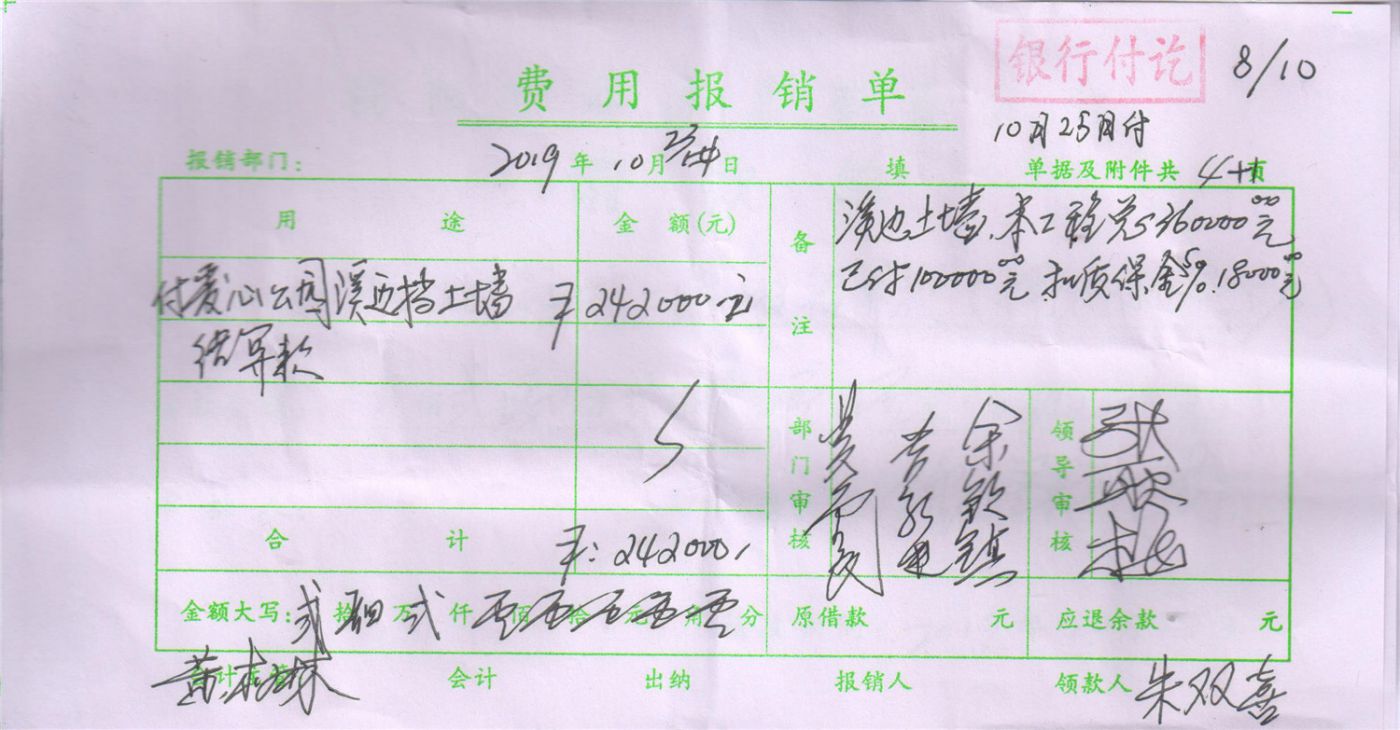 银行付讫 8/10
费用报销单
10月25日付
报销部门: 2019年10月24日 填 单据及附件共4十页
用途 金额(元) 备注
溪边土墙,本工程总价360000.00元
已付100000.00元 扣质保金5% 18000.00元
付爱心公园溪边挡土墙 ¥242000元
结算款
部门审核 余钦镇 领导审核
合计 ¥:242000
金额大写: 贰拾肆万贰仟零佰零拾零元零角零分 原借款 元 应退余款 元
会计 出纳 报销人 领款人 朱双喜